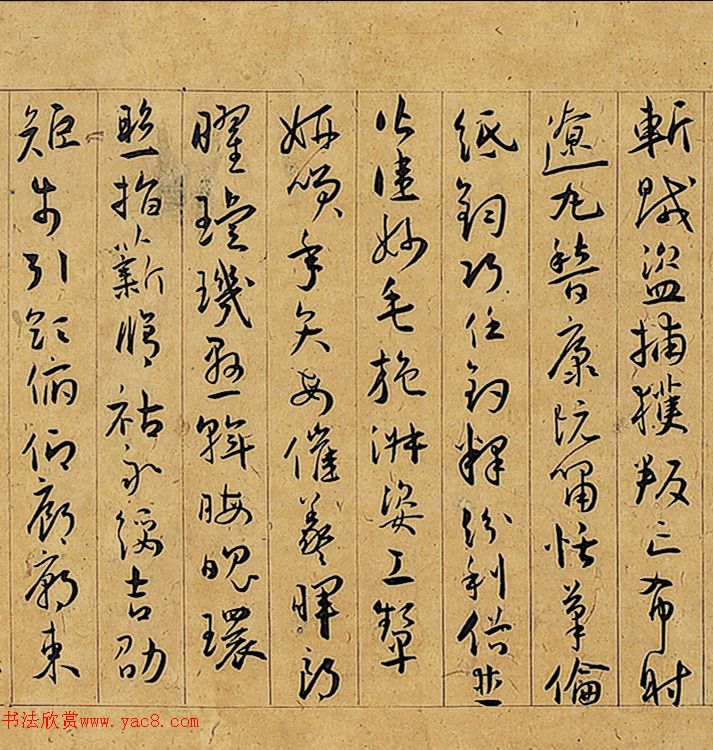 斬賊盜捕獲叛亡布射
遼丸嵇康阮嘯恬筆倫
紙鈞巧任釣釋紛利俗並
皆佳妙毛施淑姿工顰
妍笑年矢每催羲暉朗
曜璇璣懸斡晦魄環
照指薪脩祜永綏吉劭
矩步引領俯仰廊廟束
书法欣赏www.yac8.com